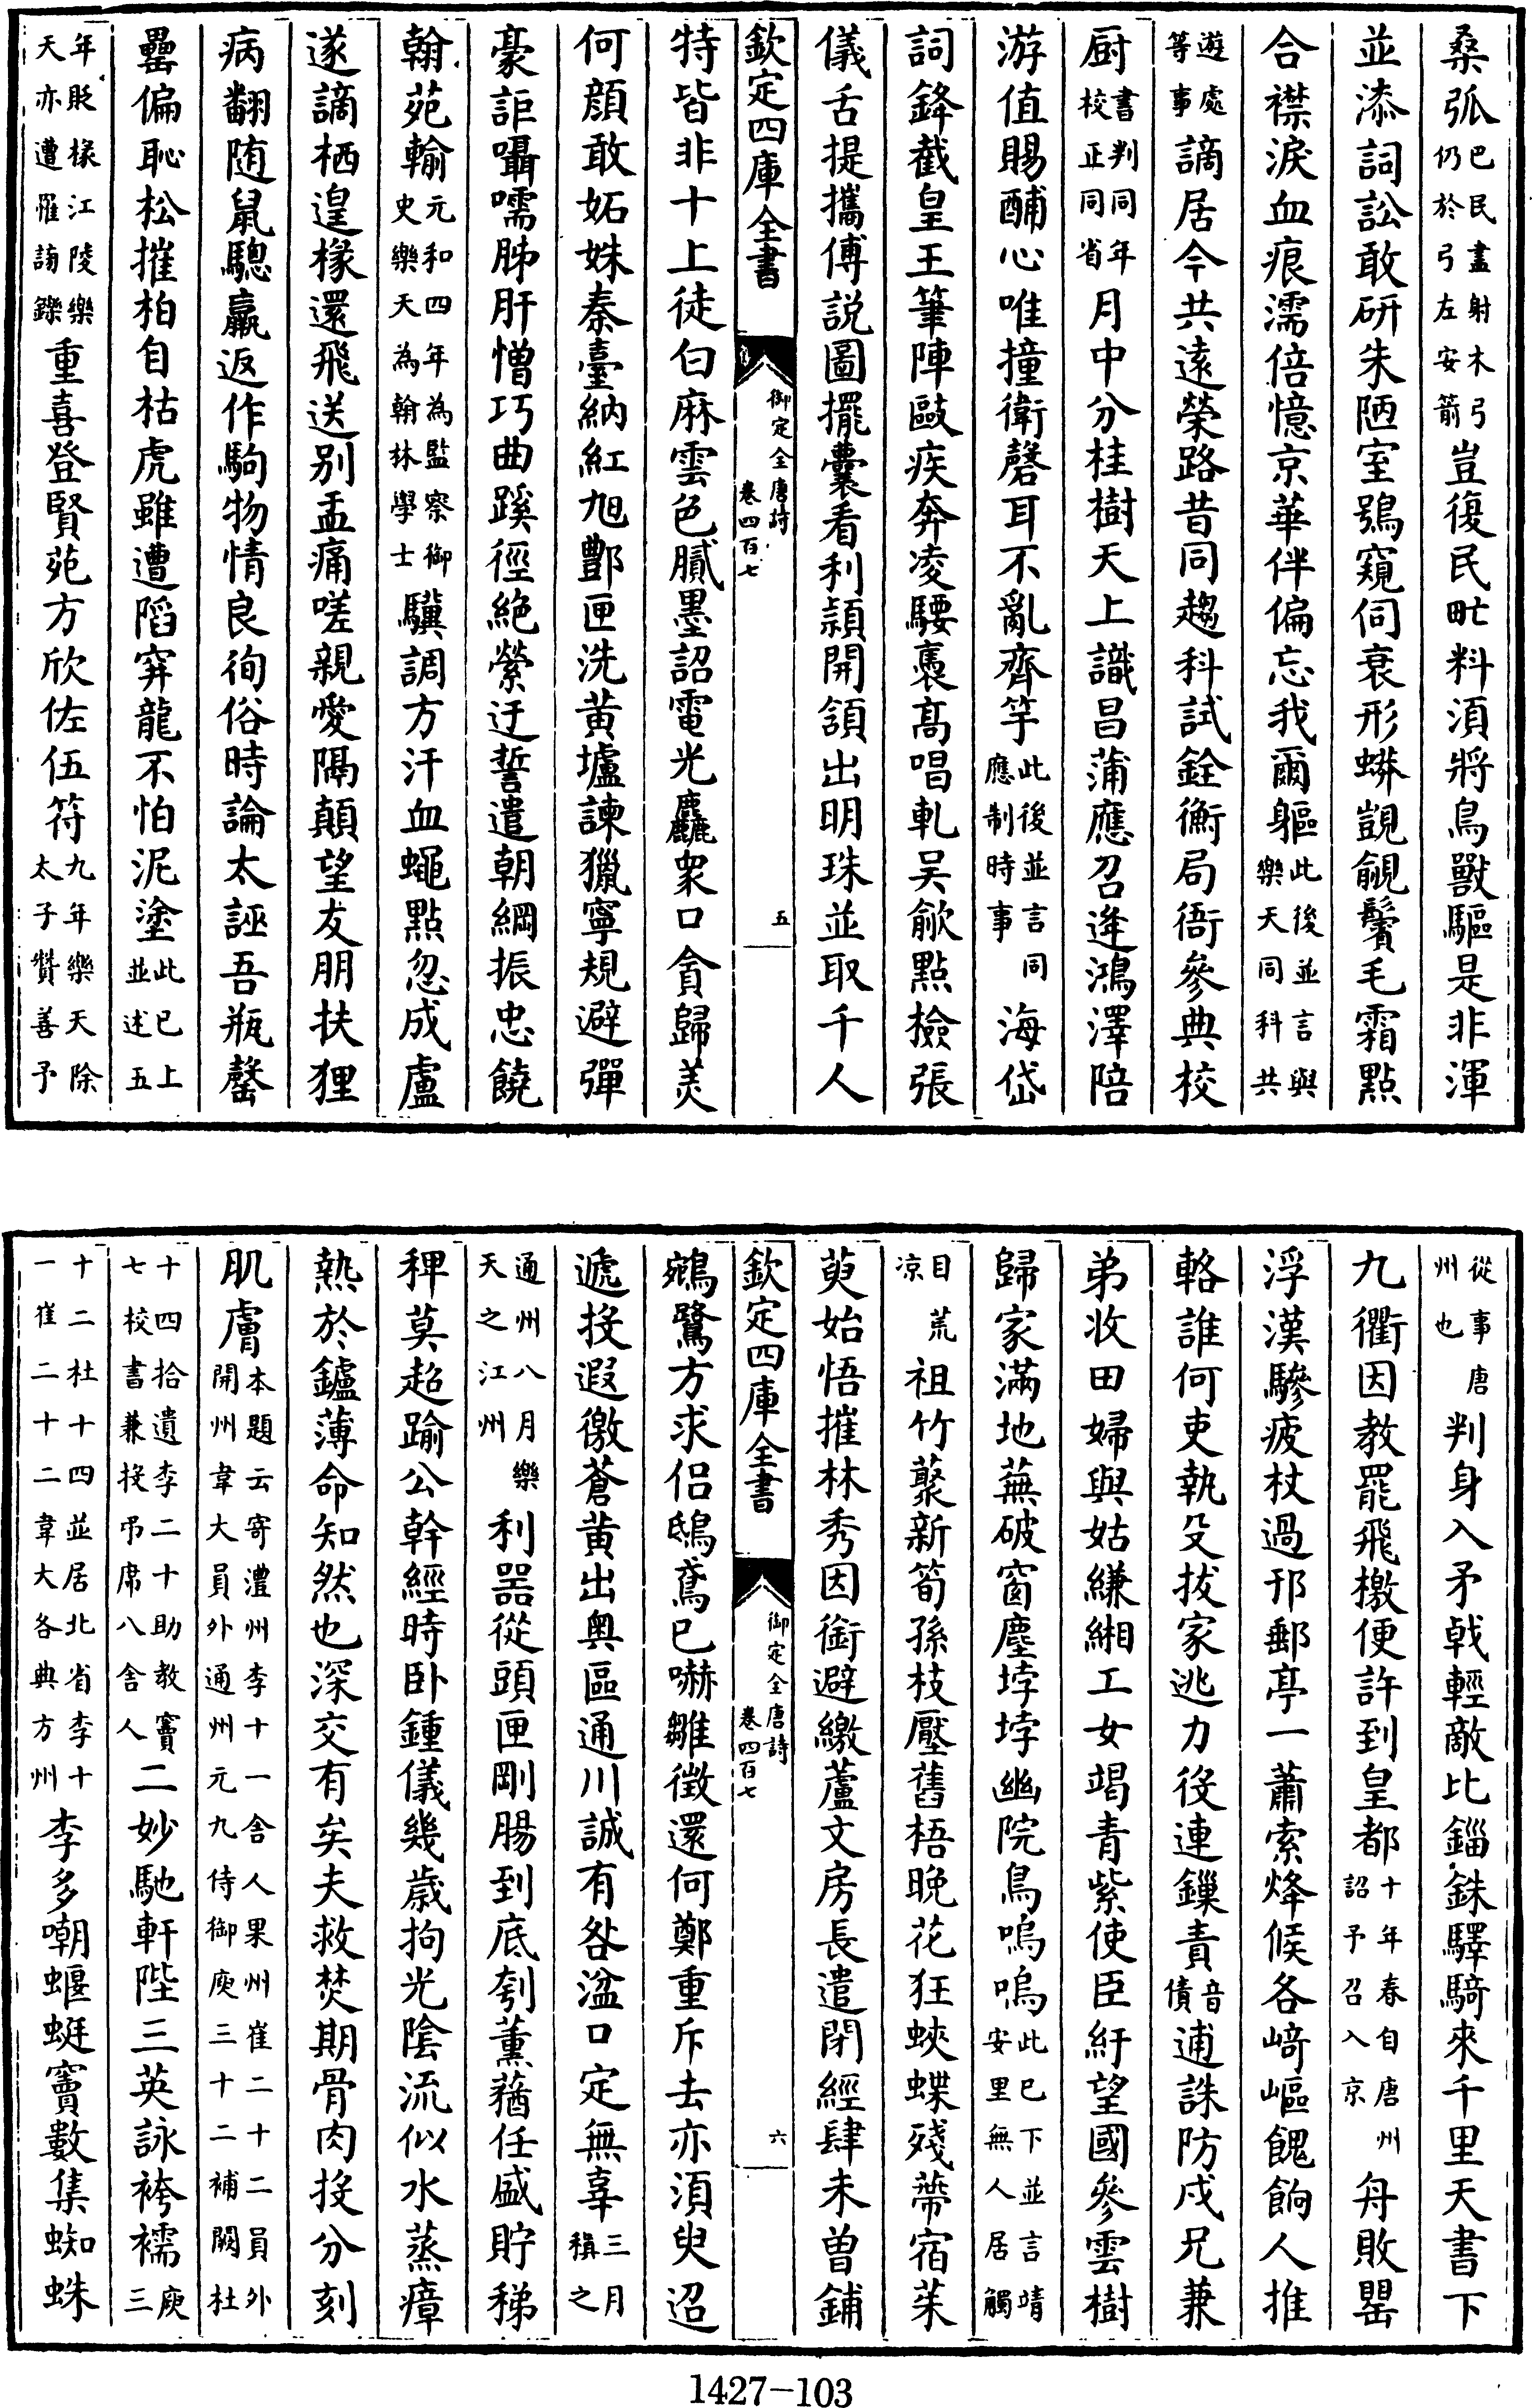 桑弧巴民盡射木弓仍於弓左安箭豈復民甿料須將鳥獸驅是非渾
並漆詞訟敢研朱陋室鴞窺伺衰形蟒覬覦鬢毛霜點
合襟淚血痕濡倍憶京華伴偏忘我爾軀此後並言與樂天同科共
遊處等事謫居今共遠榮路昔同趨科試銓衡局衙參典校
厨書判同年校正同省月中分桂樹天上識昌蒲應召逢鴻澤陪
游值賜酺心唯撞衛磬耳不亂齊竽此後並言同應制時事海岱
詞鋒截皇王筆陣敺疾奔凌騕褭高唱軋吴歈點檢張
儀舌提攜傅説圖擺囊看利頴開頷出明珠並取千人
欽定四庫全書 御定全唐詩 卷四百七 五
特皆非十上徒白麻雲色膩墨詔電光麤衆口貪歸美
何顔敢妬姝秦臺納紅旭酆匣洗黃壚諫獵寧規避彈
豪詎囁嚅肺肝憎巧曲蹊徑絶縈迂誓遣朝綱振忠饒
翰苑輸元和四年為監察御史樂天為翰林學士驥調方汗血蠅點忽成盧
遂謫栖遑掾還飛送别盂痛嗟親愛隔顛望友朋扶狸
病翻随鼠驄羸返作駒物情良徇俗時論太誣吾瓶罄
罍偏恥松摧柏自枯虎雖遭陷穽龍不怕泥塗此已上並述五
年貶掾江陵樂天亦遭罹謗鑠重喜登賢苑方欣佐伍符九年樂天除太子贊善予
從事唐州也判身入矛戟輕敵比錙銖驛騎來千里天書下
九衢因教罷飛檄便許到皇都十年春自唐州詔予召入京舟敗罌
浮漢驂疲杖過邘郵亭一蕭索烽候各崎嶇餽餉人推
輅誰何吏執殳拔家逃力役連鏁責音債逋誅防戍兄兼
弟收田婦與姑縑緗工女竭青紫使臣紆望國參雲樹
歸家滿地蕪破窗塵㘧㘧幽院鳥嗚嗚此巳下並言靖安里無人居觸
目荒凉祖竹藂新筍孫枝壓舊梧晚花狂蛺蝶殘蔕宿茱
萸始悟摧林秀因銜避繳蘆文房長遣閉經肆未曾鋪
欽定四庫全書 御定全唐詩 卷四百七 六
鵷鷺方求侣鴟鳶已嚇雛徵還何鄭重斥去亦須臾迢
遞投遐徼蒼黃出奥區通川誠有咎湓口定無辜三月稹之
通州八月樂天之江州利器從頭匣剛腸到底刳薰蕕任盛貯稊
稗莫超踰公幹經時卧鍾儀幾歲拘光陰流似水蒸瘴
熱於鑪薄命知然也深交有矣夫救焚期骨肉投分刻
肌膚本題云寄澧州李十一舍人果州崔二十二員外開州韋大員外通州元九侍御庾三十二補闕杜
十四拾遺李二十助教竇七校書兼投弔席八舍人二妙馳軒陛三英詠袴襦庾三
十二杜十四並居北省李十一崔二十二韋大各典方州李多嘲蝘蜓竇數集蜘蛛
1427-103